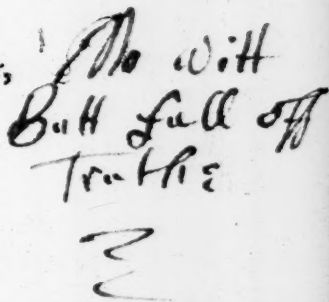 No Witt
Butt full off
Truthe